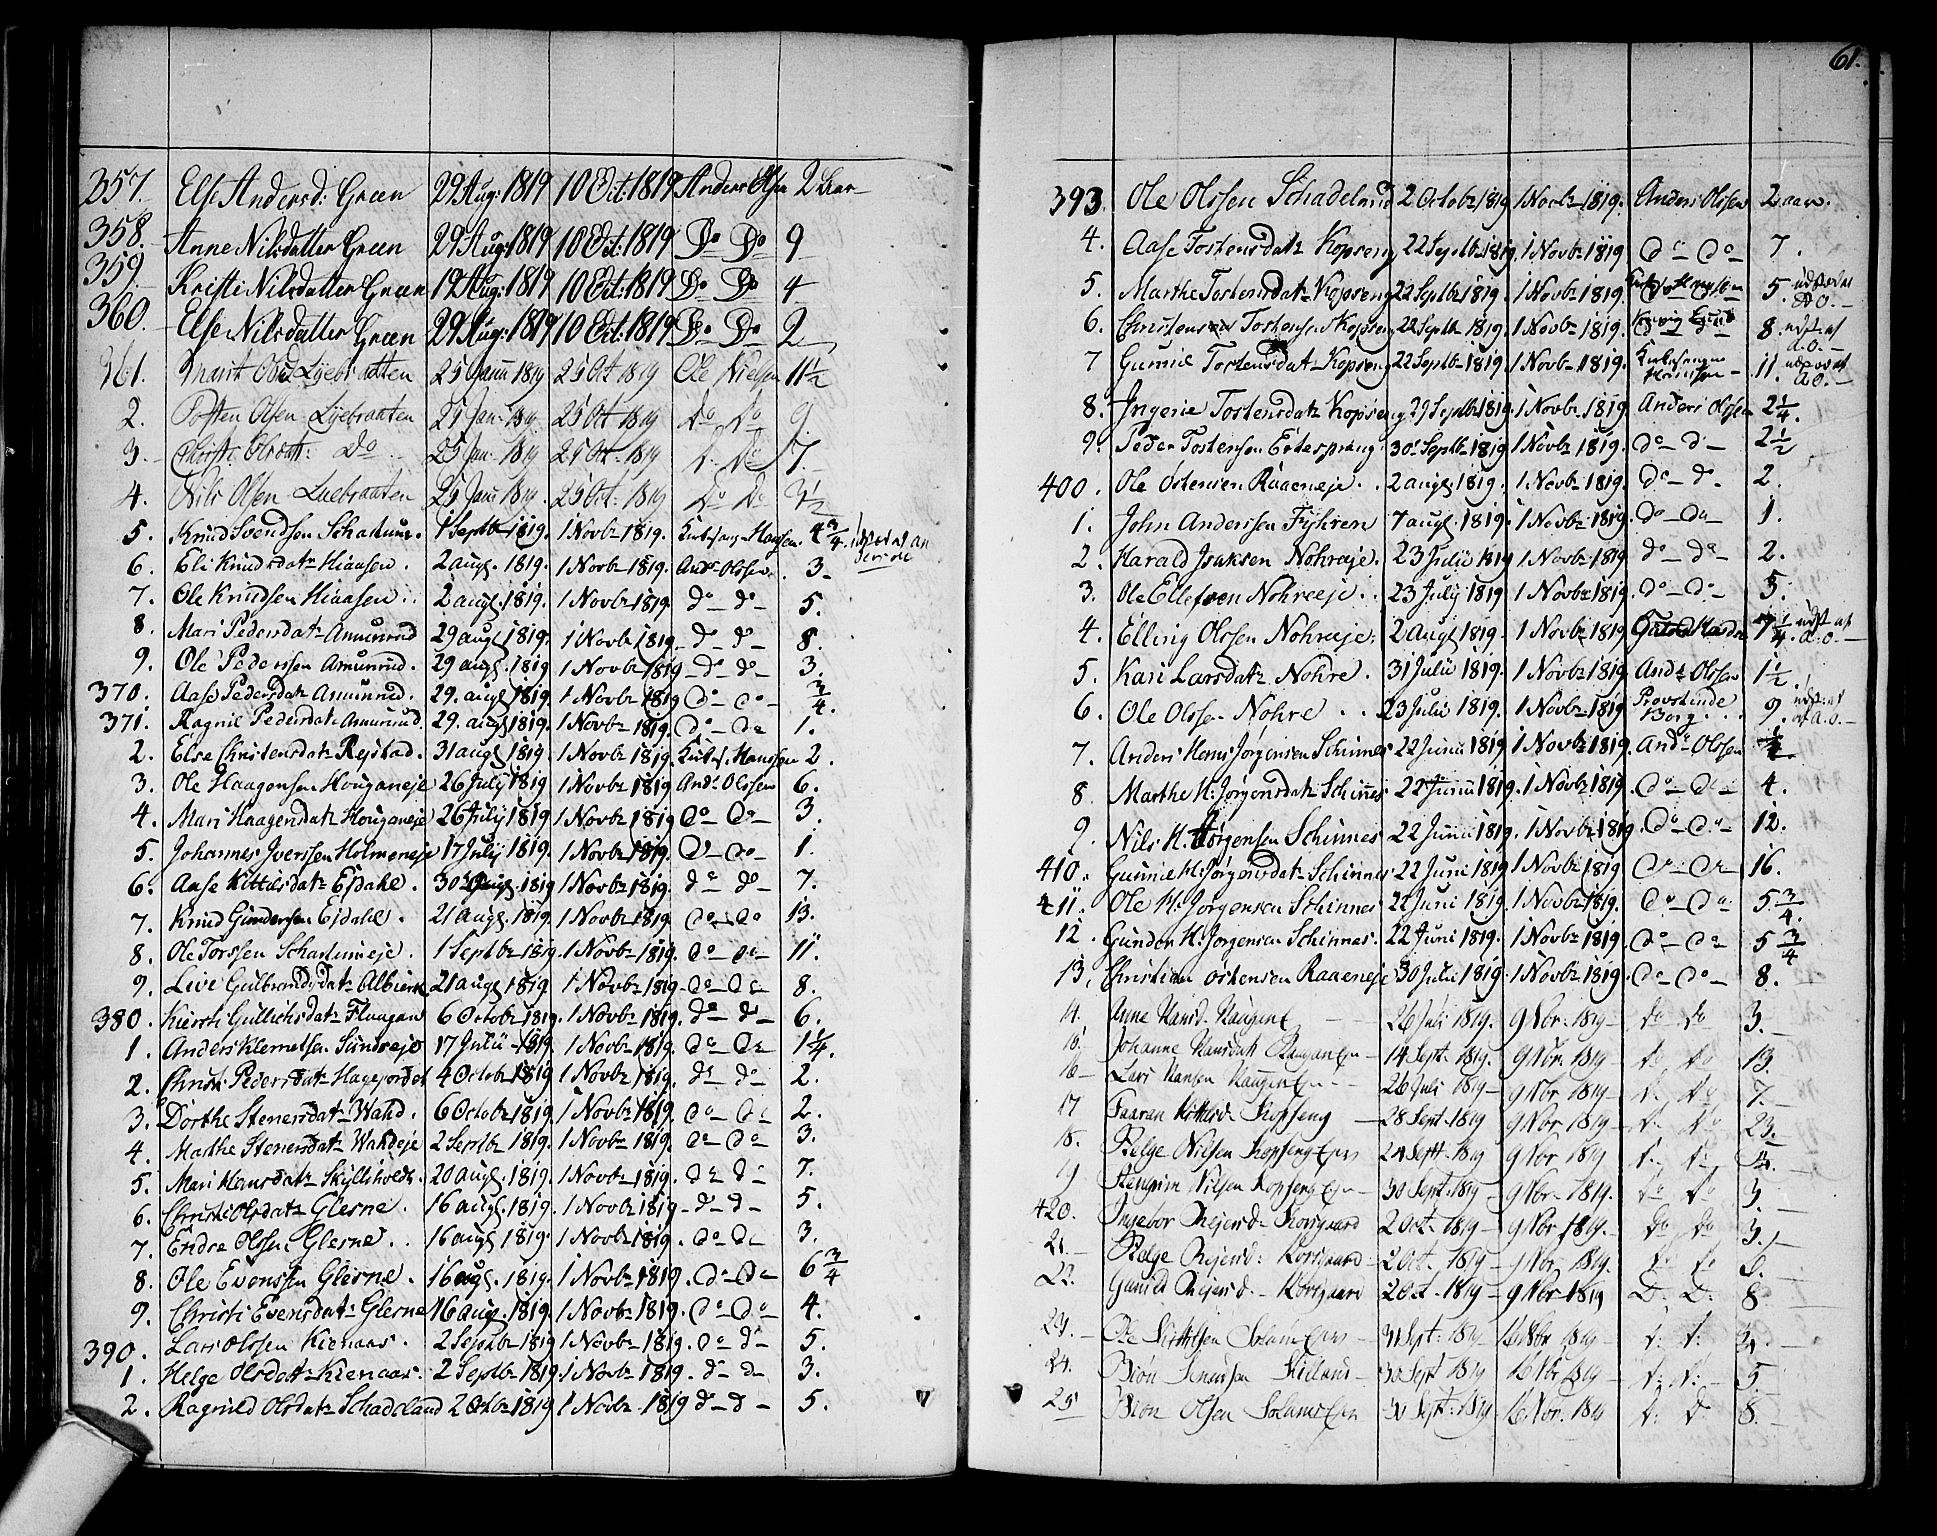 357. Else Andersd: Green 29 Aug: 1819 10 Oct: 1819 Anders Olsen 2 Aar
358. Anne Nilsdatter Green 29 Aug: 1819 10 Oct: 1819 Do Do 9
359. Kristi Nilsdatter Green 19 Aug: 1819 10 Oct: 1819 Do Do 4
360. Else Nilsdatter Green 29 Aug: 1819 10 Oct: 1819 Do Do 2
361. Marit 25 Janu 1819 25 Oct 1819 Ole Nielsen 11 1/2
2. Olsen Liebraaten 25 Jan 1819 25 Oct 1819 Do Do 9.
3. Do 25 Jan 1819 25 Oct 1819 D: Do 7.
4. Nils Olsen Liebraaten 25 Janu 1819 25 Oct: 1819 Do Do 3 1/2
5. Knud Svendsen 1 Septbr 1819. 1 Novbr 1819. Hansen. 4 3/4.
6. Eli Knudsdatr Hiaasen. 2 augl. 1819. 1 Novbr 1819. Andr Olssen. 3
7. Ole Knudsen Hiaasen. 2 augl. 1819. 1 Novbr 1819 do do 5.
8. Mari Pedersdatr Amunrud 29 augl 1819. 1 Novbr 1819. do do 8.
9. Ole Pederssen Amunrud. 29 augl. 1819 1 Novbr 1819 do do 3.
370. Aase Pedersdatr Amunrud. 29. augl 1819 1 Novbr 1819 do do 3/4.
371. Ragnil Pedersdatr Amunrud. 29. augl 1819 1 Novbr 1819. do do 1.
2. Else Christensdatr Rejstad. 31 augl 1819 1 Novbr 1819 Hanssen 2.
3. Ole Haagensen Houganeje 26 July 1819 1 Novbr 1819 Andr Olssen 6.
4. Mari Haagensdatr Houganeje 26 July 1819 1 Novbr 1819 do do 3.
5. Johannes Iverssen Holmeneje 17 July 1819. 1 Novbr 1819. do do 1.
6. Aase Kittilsdatr Ejdahl. 30 augl. 1819 1 Novbr 1819. do do 7.
7. Knud Gundersen Ejdahl. 21 augl. 1819. 1 Novbr 1819. do do 13.
8. Ole Torssen 1 Septbr 1819. 1 Novbr 1819. do do 11.
9. Live Gulbrandsdatr 21 augl 1819 1 Novbr 1819. do do 8.
380. Kiersti Gullichsdatr Flaagan 6 Octobr 1819. 1 Novbr 1819. do do 6.
1. Anders Klemetsen Sundreje 17 Julii 1819. 1 Novbr 1819. do do 1 1/4.
2. Christi Pedersdatr Hagejordet 4 Octobr 1819 1 Novbr 1819. do do 2.
3. Dorthe Stenersdatr Wahd. 6 Octobr 1819. 1 Novbr 1819. do do 2.
4. Marthe Stenersdatr Wahdeje 2 Septbr 1819. 1 Novbr 1819. do do 3.
5. Mari Hansdatr 20 augl. 1819. 1 Novbr 1819. do do 7.
6. Christi Olsdatr Glesne. 16 augl. 1819. 1 Novbr 1819 do do 5.
7. Endre Olssen Glesne. 16 augl 1819. 1 Novbr 1819. do do 3.
8. Ole Evenssen Glesne. 16 augl. 1819. 1 Novbr 1819. do do 6 3/4
9. Christi Evensdatr Glesne 16 aug. 1819. 1 Novbr 1819. do do 4.
390. Lars Olssen Kienaas. 2 Septbr 1819 1 Novbr 1819. do do 5.
1. Helge Olsdatr Kienaas. 2 Septbr 1819. 1 Novbr 1819. do do 3.
2. Ragnild Olsdatr Schadeland 2 Octobr 1819 1 Novbr 1819 do do 5.
61.
393. Ole Olssen Schadelund 2 Octobr 1819 1 Novbr 1819. Anders Olssen 2 aar.
4. Aase Tostensdatr Kopseng 22 Septbr 1819. 1 Novbr 1819 do do 7.
5. Marthe Tostensdatr Kopseng 22 Septbr 1819. 1 Novbr 1819. 5.
6. Christensen Tostensen Kopseng 22 Septbr 1819. 1 Novbr 1819. 8
7 Gunnil Tostensdatr Kopseng 22 Septbr 1819 1 Novbr 1819. 11.
8. Ingerie Tostensdatr Kopseng 29 Septbr 1819. 1 Novbr 1819 Anders Olssen 2 1/4.
9. Peder Tostensen Ertesprang 30 Septbr 1819. 1 Novbr 1819. do do 2 1/2
400. Ole Østensen Raaeneje. 2 augl 1819. 1 Novbr 1819. do do 2.
1. John Anderssen Fyhren 7 augl. 1819. 1 Novbr 1819. do do 1.
2. Harald Isaksen Nohreeje. 23 Julii 1819 1 Novbr 1819 do do 2.
3. Ole Ellefsen Nohreeje. 23 July 1819 1 Novbr 1819. do do 5.
4. Elling Olssen Nohreeje. 2 Augl 1819. 1 Novbr 1819
5. Kari Larsdatr Nohre. 31 Julii 1819. 1 Novbr 1819 Andr Olssen 1 1/2
6. Ole Olssen Nohre 23 Julii 1819. 1 Novbr 1819 Borg 9.
7. Anders Hans Jørgensen Schinnes 22 Junii 1819. 1 Novbr 1819. Andr Olssen
8 Marthe H. Jørgensdatr Schinnes 22 Junii 1819. 1 Novbr 1819. do do 4.
9. Nils H. Jørgensen Schinnes 22 Junii 1819. 1 Novbr 1819. do do 12.
410. Gunnil H. Jørgensdatr Schinnes 22 Juni 1819. 1 Novbr 1819 do do 16.
411. Ole H. Jørgensen Schinnes 22 Juni 1819. 1 Novbr 1819. do do 5 3/4.
12. Gunder H. Jørgensen Schinnes. 22 Juni 1819. 1 Novbr 1819. do do 5 3/4
13. Christian Østensen Raaeneje 30 Julii 1819. 1 Novbr 1819. do do 8.
14. Anne Hansd. Haugen E 26 Juli 1819. 9 Nbr. 1819 do do 3.
15. Johanne Hansdatr Haugen Eje 14 Sept. 1819. 9 Nbr. 1819 do do 13.
16 Lars Hansen Haugen Eje 26 Juli 1819 9 Nbr 1819 do do 7.
17 Kopseng 28 Sept. 1819 9 Nbr 1819 do do 23.
18. Helge Nilsen Kopseng Eje 24 Sept 1819 9 Nbr 1819 do do 4.
19 Stengrim Nilsen Kopseng Eje 30 Sept. 1819 9 Nbr. 1819. do do 3.
420. Ingebor Rejersd. Korsgaard 2 Oct. 1819 9 Nbr 1819. Do Do 3.
21. Helge Rejersd: Korsgaard 2 Oct. 1819 9 Nbr 1819. do do 6.
22. Gunild Rejersd. Korsgaard 2 Oct. 1819 9 Nbr 1819 D: D: 8
23. Ole Eje 31 Sept: 1819 16 Nbr 1819 d: d: 4.
24. Biøn 30 Sept 1819 16 Nbr 1819 d: d: 5
25 Biøn Olsen 30 Sept: 1819 16 Nbr. 1819 d: D: 8.